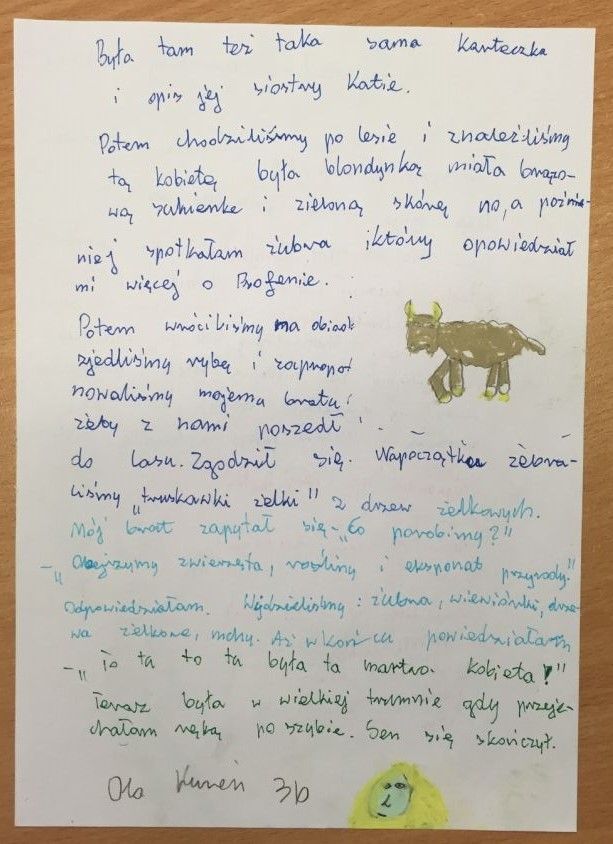 Była tam też taka sama karteczka
i opis jej siostry Katie.
Potem chodziliśmy po lesie i znaleźliśmy
tą kobietę była blondynką miała brązo-
wą sukienke i zieloną skórę no, a poźnie-
niej spotkałam żubra i który opowiedział
mi więcej o Profenie.
Potem wróciliśmy na obiad
zjedliśmy rybę i zapropo
nowaliśmy mojemu bratu
żeby z nami poszedł
do lasu. Zgodził się. Napoczątku zebra-
liśmy "truskawki żelki" z drzew żelkowych.
Mój brat zapytał się -"Co porobimy?"
-"Obejrzymy zwierzęta, rośliny i eksponat przyrody."
Odpowiedziałam. Widzieliśmy: żubra, wiewiórki, drze-
wa żelkowe, mchy. Aż w końcu powiedziałam
-"To ta to ta była ta martwa kobieta!"
Teraz była w wielkiej trumnie gdy przeje-
chałam ręką po szybie. Sen się skończył.
Ola Kureń 3b